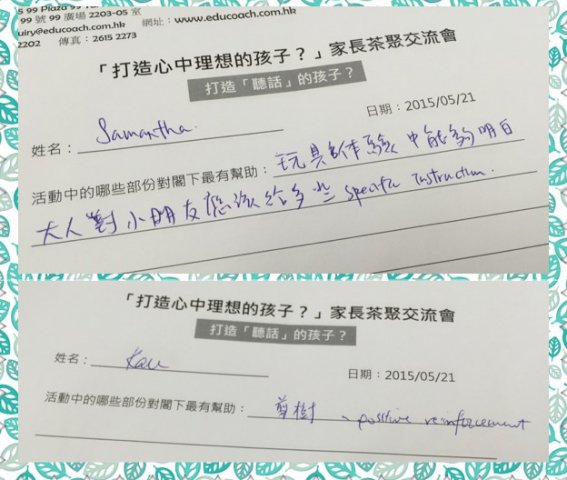 99 Plaza 99
99 號 99 廣場 2203-05 室
uiry@educoach.com.hk 網址：www.educoach.com.hk
2202 傳真：2615 2273
「打造心中理想的孩子？」家長茶聚交流會
打造「聽話」的孩子？
日期：2015/05/21
姓名：Samantha.
活動中的哪些部份對閣下最有幫助：玩具體驗中能夠明白
大人對小朋友應該給多些 specific instruction.
「打造心中理想的孩子？」家長茶聚交流會
打造「聽話」的孩子？
姓名：
日期：2015/05/21
活動中的哪些部份對閣下最有幫助：剪樹、positive reinforcement